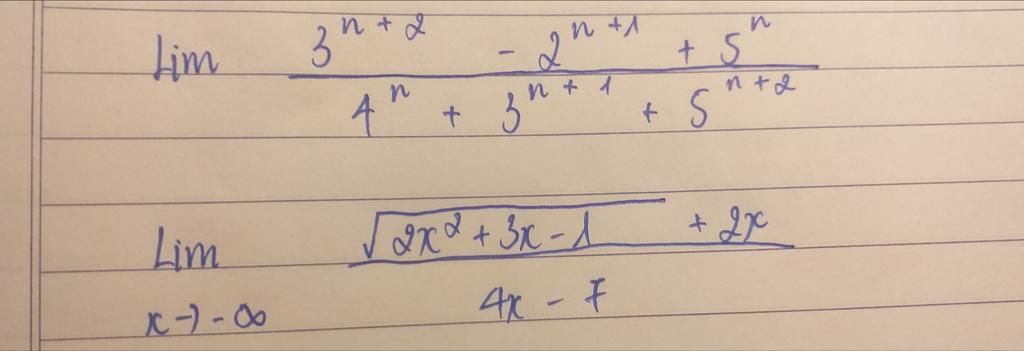 Lim (3^{n+2} - 2^{n+1} + 5^n) / (4^n + 3^{n+1} + 5^{n+2})
Lim x→-∞ (√(2x² + 3x - 1) + 2x) / (4x - 7)